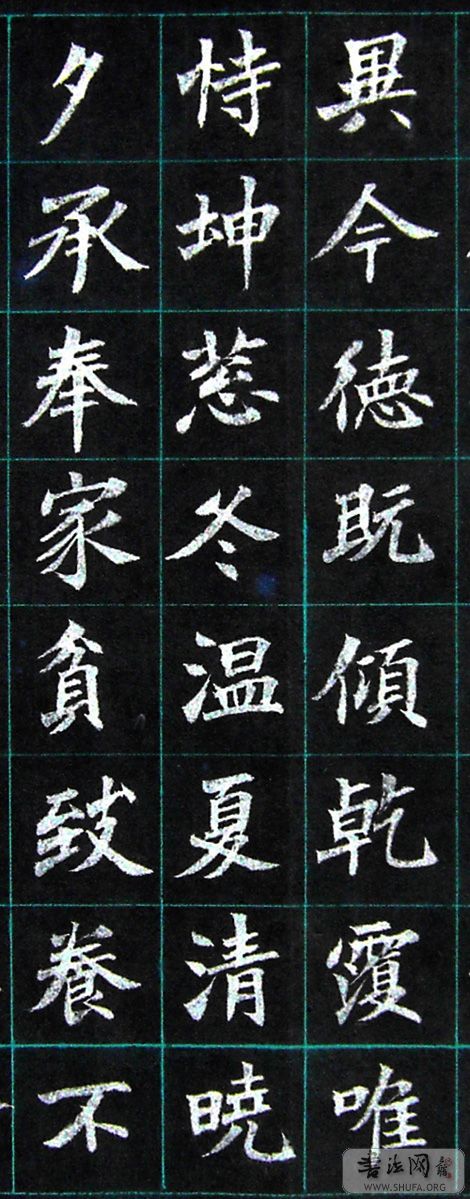 異今徳既傾乾覆唯
恃坤慈冬温夏清暁
夕承奉家貧致養不
書法网
WWW.SHUFA.ORG